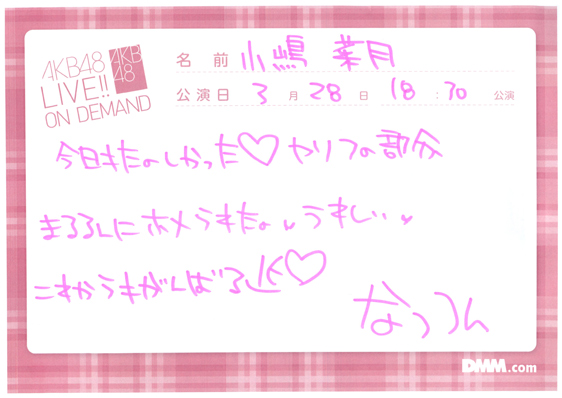 AKB48
LIVE!!
ON DEMAND
AKB
48
名前 小嶋 菜月
公演日 3月28日 18:30 公演
今日もたのしかった♡ セリフの部分
まるるんにホメられたよ、うれしい♥
これからもがんばるよ♡
なっつん
DMM.com